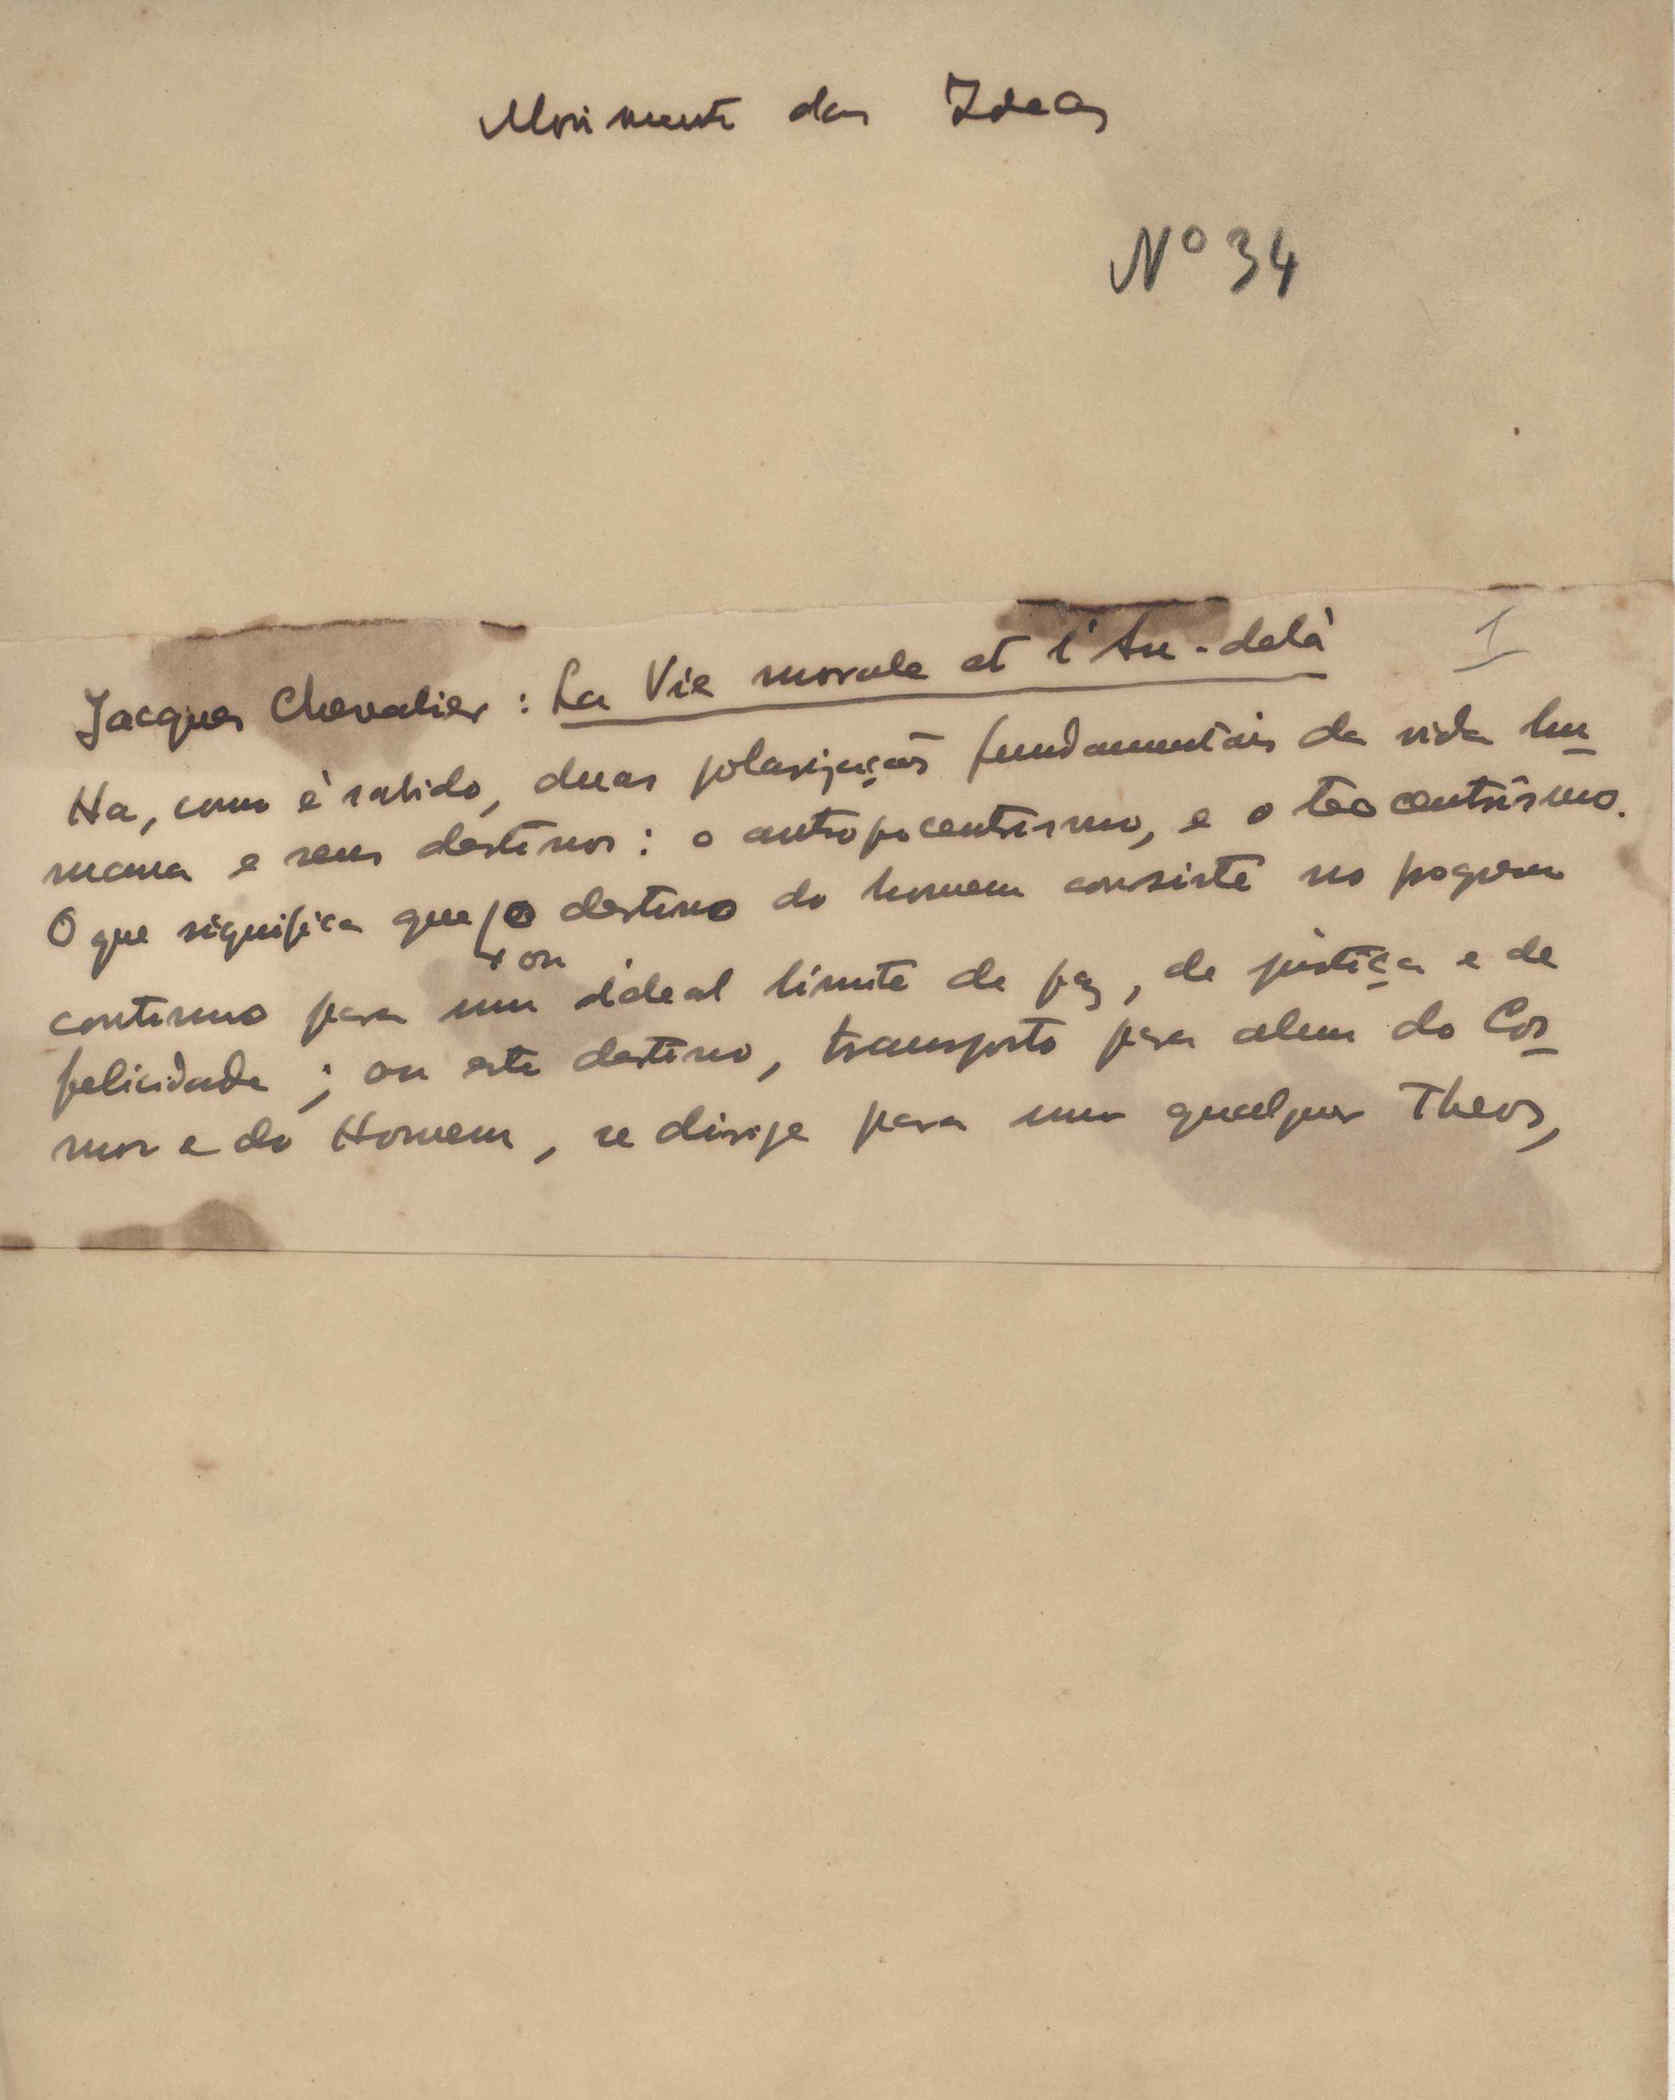 Movimento das Ideas
Nº 34
1
Jacques Chevalier : La Vie morale et l'Au-delà
Ha, como é sabido, duas polarizações fundamentais da vida hu
mana e seus destinos : o antropocentrismo, e o teocentrismo.
O que significa que o destino do homem consiste no progresso
ou
continuo para um ideal limite de paz, de justiça e de
felicidade ; ou este destino, transposto para alem do Cos
mos e do Homem, se dirige para um qualquer Theos,